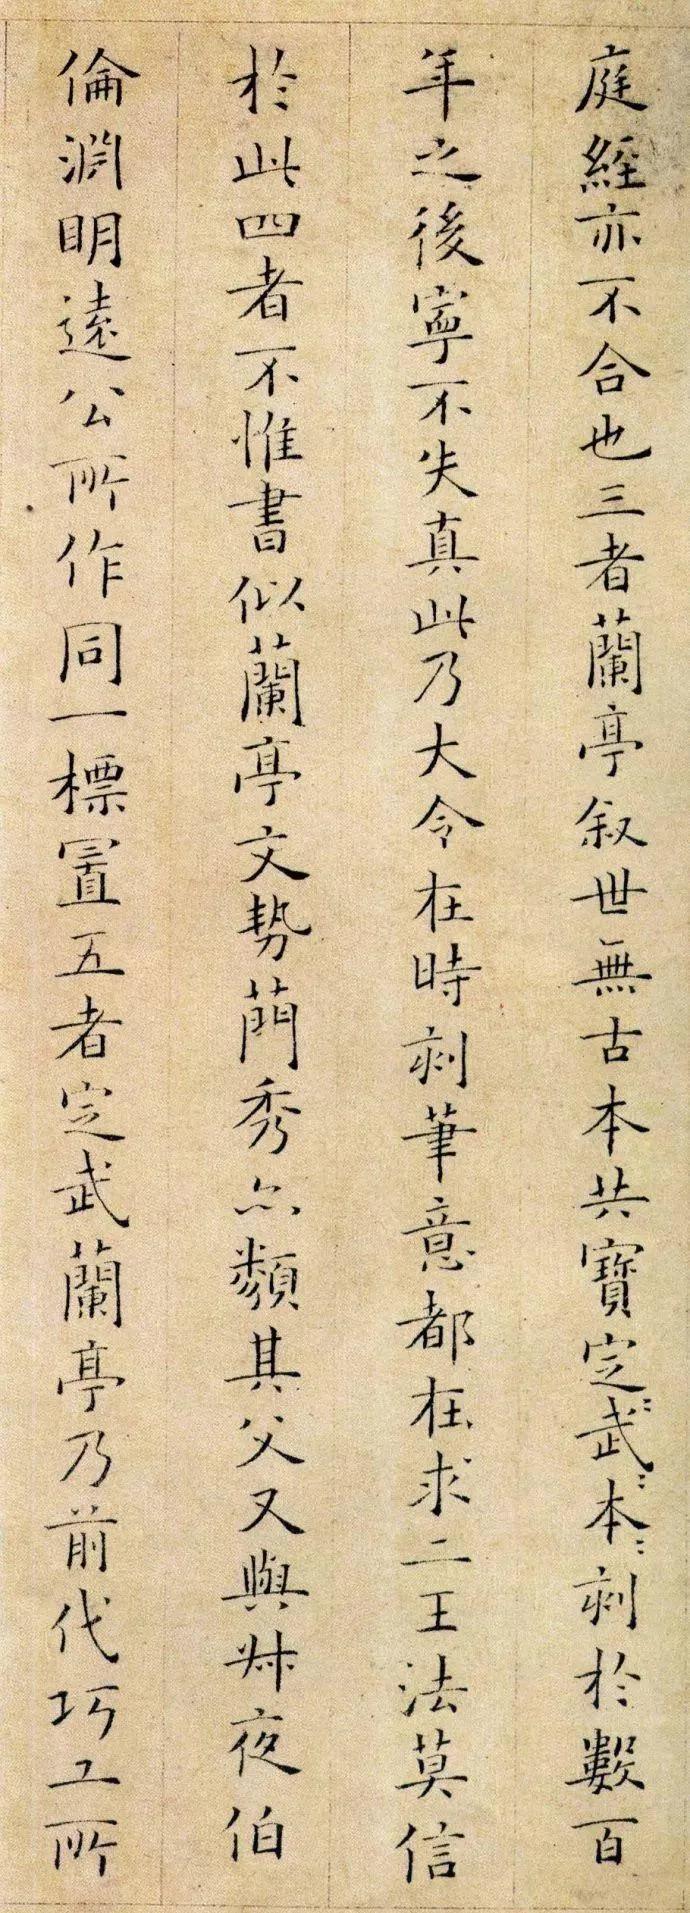 庭經亦不合也三者蘭亭叙世無古本共寶定武本刻於數百
年之後寧不失真此乃大令在時刻筆意都在求二王法莫信
於此四者不惟書似蘭亭文勢蕳秀亦類其父又與叔夜伯
倫淵明遠公所作同一標置五者定武蘭亭乃前代巧工所